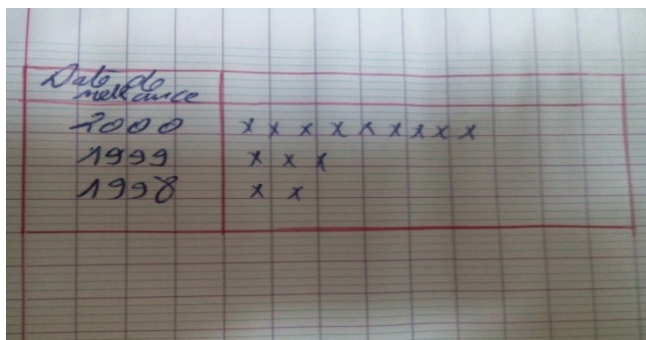 Date de
naissance
2000 x x x x x x x x x
1999 x x x
1998 x x